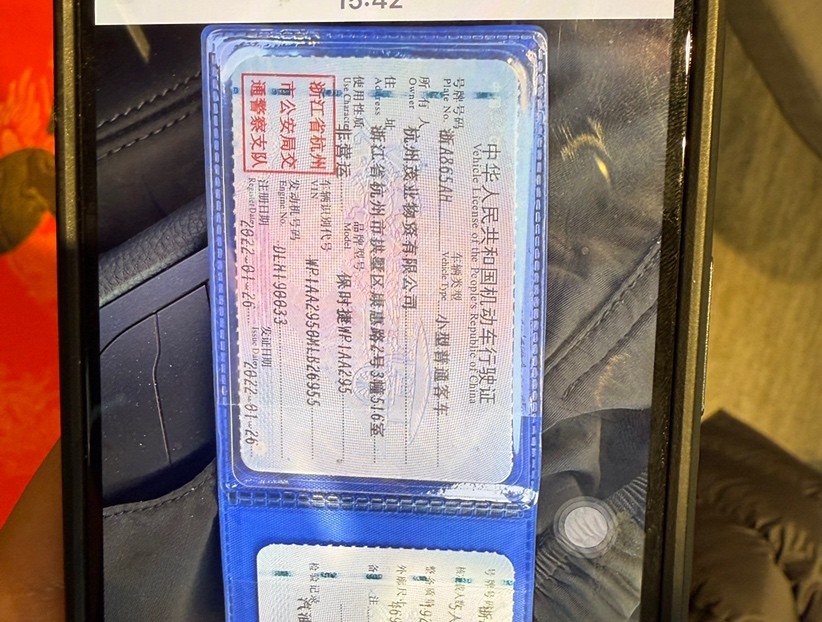 15:42
中华人民共和国机动车行驶证
Vehicle License of the People's Republic of China
号牌号码 浙A865AH 车辆类型 小型普通客车
Plate No. Vehicle Type
所有人 杭州茂业物资有限公司
Owner
住址 浙江省杭州市拱墅区康惠路2号3幢516室
Address
使用性质 非营运 品牌型号 保时捷WP1AA295
Use Character Model
浙江省杭州
市公安局交
通警察支队
车辆识别代号 WP1AA2950MLB26955
VIN
发动机号码 DLN190033
Engine No.
注册日期 2022-01-26 发证日期 2022-01-26
Register Date Issue Date
号牌号码 浙
整备质量
外廓尺
备注
检验记录